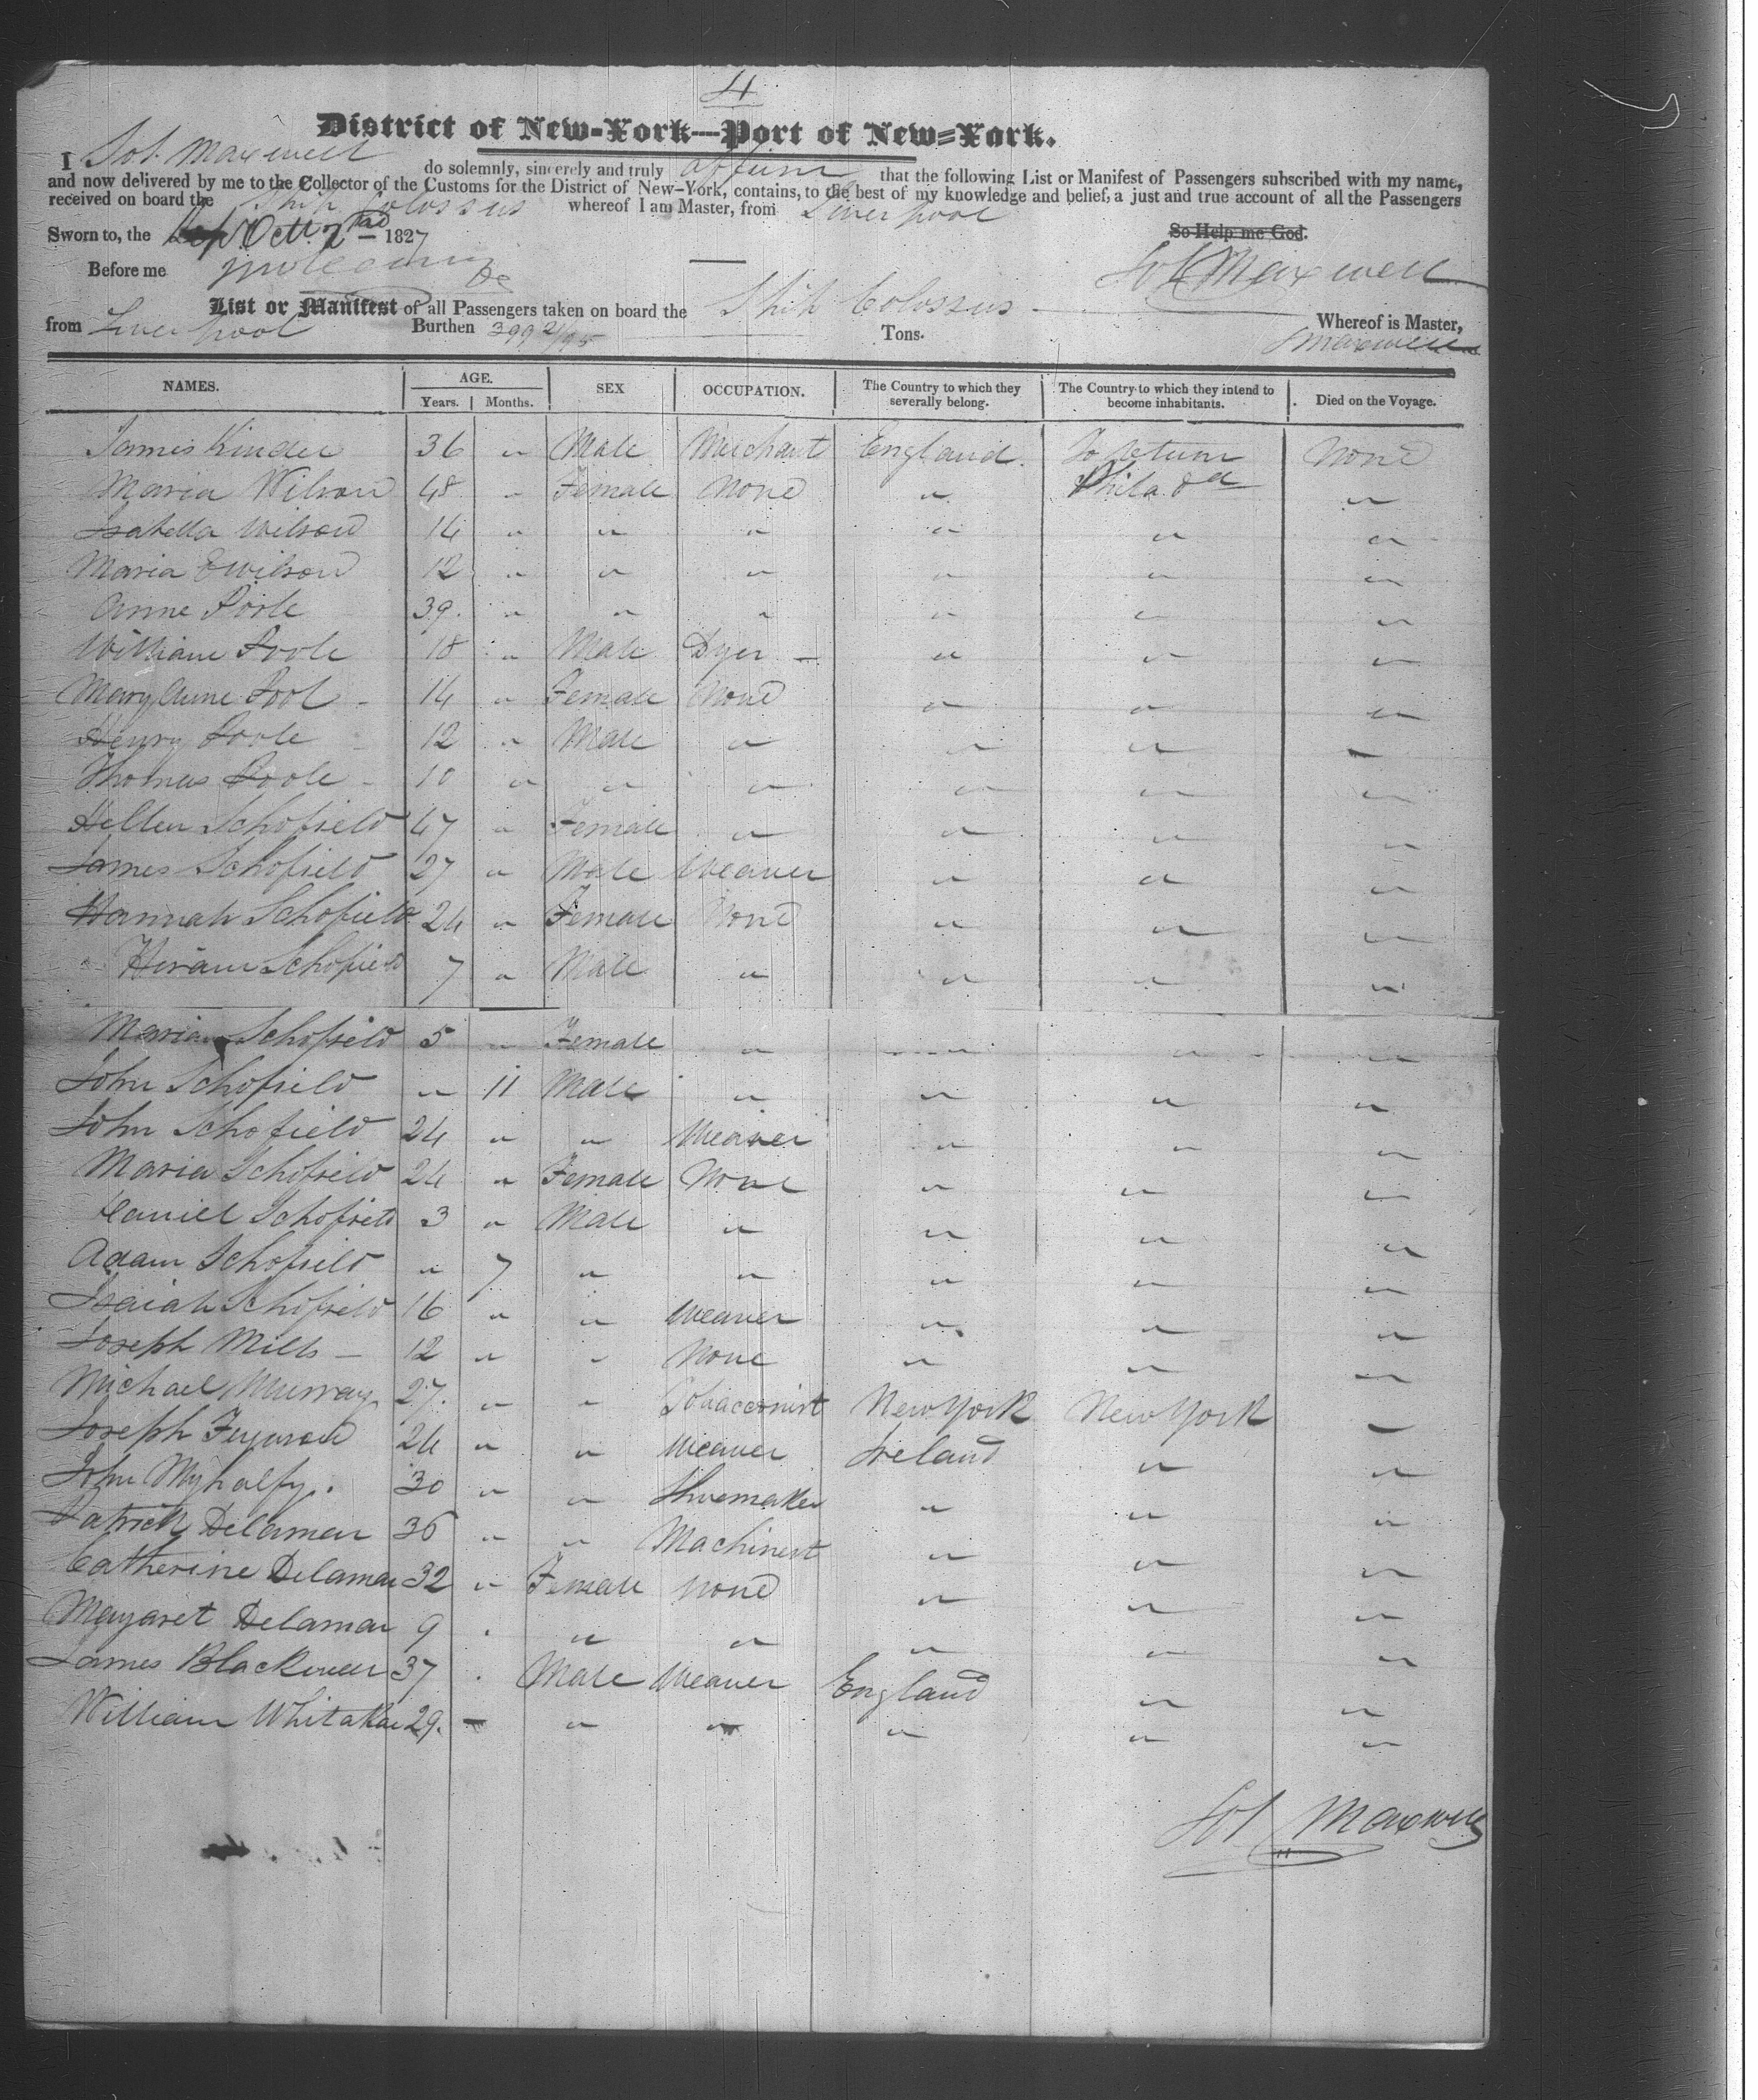 4
District of New-York—Port of New-York.
I Sol. Maxwell do solemnly, sincerely and truly affirm that the following List or Manifest of Passengers subscribed with my name,
and now delivered by me to the Collector of the Customs for the District of New-York, contains, to the best of my knowledge and belief, a just and true account of all the Passengers
received on board the Ship Colossus whereof I am Master, from Liverpool
Sworn to, the Octr. 2nd 1827 So Help me God.
Before me Sol Maxwell
List or Manifest of all Passengers taken on board the Ship Colossus Whereof is Master,
from Liverpool Burthen 399 21/95 Tons. S Maxwell
NAMES. AGE. Years. Months. SEX OCCUPATION. The Country to which they severally belong. The Country to which they intend to become inhabitants. Died on the Voyage.
James Kinder 36 " Male Merchant England. To return None
Maria Wilson 48 " Female None " Philada "
Isabella Wilson 14 " " " " " "
Maria E Wilson 12 " " " " " "
Anne Poole 39. " " " " " "
William Poole 18 " Male Dyer — " " "
Mary Anne Pool - 14 " Female None " " "
Henry Poole - 12 " Male " " " "
Thomas Poole - 10 " " " " " "
Hellen Schofield 47 " Female " " " "
James Schofield 27 " Male Weaver " " "
Hannah Schofield 24 " Female None " " "
Hiram Schofield 7 " Male " " " "
Maria Schofield 5 " Female " " " "
John Schofield " 11 Male " " " "
John Schofield 24 " " Weaver " " "
Maria Schofield 24 " Female None " " "
Daniel Schofield 3 " Male " " " "
Adam Schofield " 7 " " " " "
Isaiah Schofield 16 " " Weaver " " "
Joseph Mills — 12 " " None " " "
Michael Murray 27. " " Tobacconist New York New York "
Joseph Ferguson 24 " " Weaver Ireland " "
John Myhalfy. 30 " " Shoemaker " " "
Patrick Delamar 36 " " Machinest " " "
Catherine Delamar 32 " Female None " " "
Margaret Delamar 9 " " " " " "
James Blackwell 37 . Male Weaver England " "
William Whitakar 29. — " " " " "
Sol Maxwell